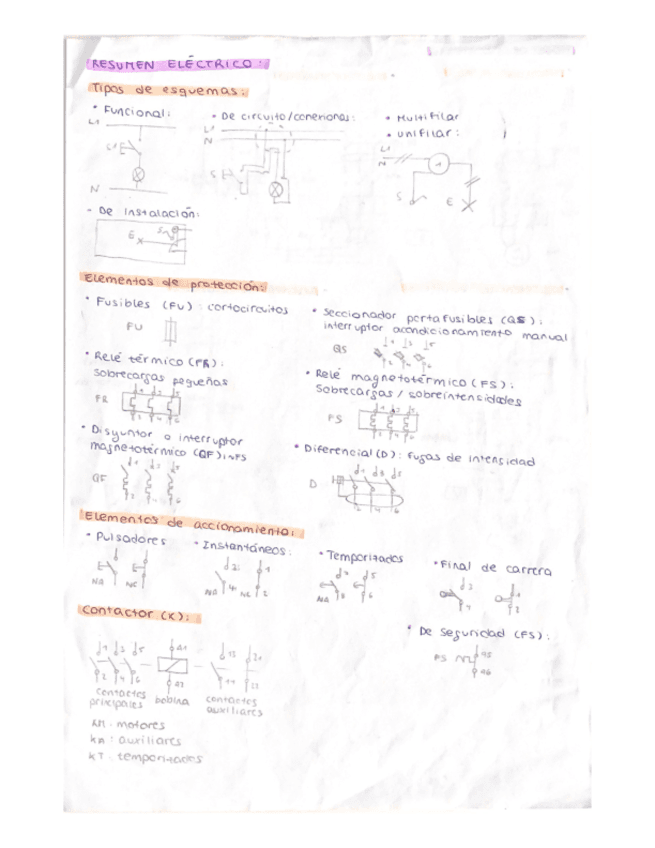 RESUMEN ELÉCTRICO:
Tipos de esquemas:
• Funcional:
• De circuito/conexiones:
• Multifilar
• unifilar:
L1
N
L1
N
S
L1
N
S E
- De instalación:
E S
Elementos de protección:
• Fusibles (FU): cortocircuitos
FU
• Seccionador portafusibles (QS):
interruptor acondicionamiento manual
QS
1 3 5
2 4 6
• Relé térmico (FR):
sobrecargas pequeñas
FR
1 3 5
2 4 6
• Relé magnetotérmico (FS):
Sobrecargas / sobreintensidades
FS
1 3 5
2 4 6
• Disyuntor o interruptor
magnetotérmico (QF):
QF
1 3 5
2 4 6
• Diferencial (D): fugas de intensidad
D
1 3 5
2 4 6
Elementos de accionamiento:
• Pulsadores
NA NC
• Instantáneos:
NA NC 2
• Temporizados
NA
• Final de carrera
Contactor (K):
1 3 5
2 4 6
A1
A2
13 21
contactos
principales
bobina
contactos
auxiliares
• De seguridad (FS):
FS 95
96
KM: motores
KA: auxiliares
KT: temporizados